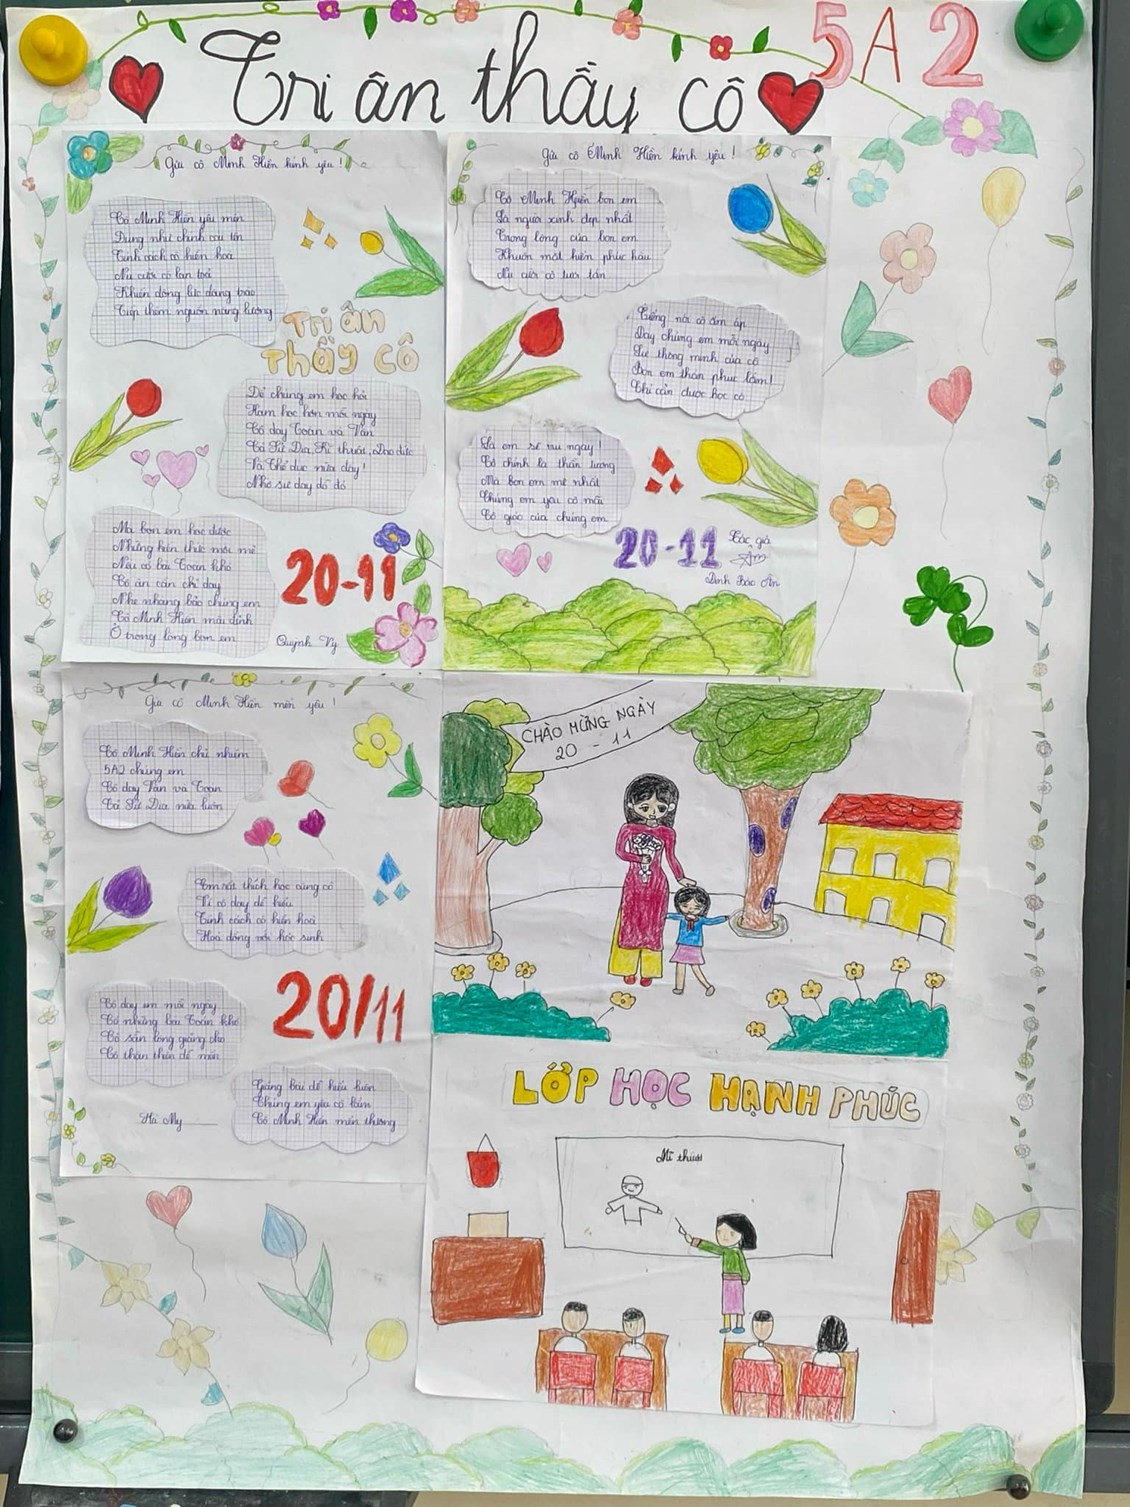 5A2
Tri ân thầy cô
Gửi cô Minh Hiền kính yêu !
Cô Minh Hiền yêu mến
Đúng như chính cái tên
Tính cách cô hiền hoà
Nụ cười cô lan toả
Khiến động lực dâng trào
Tiếp thêm nguồn năng lượng
Tri ân
thầy cô
Để chúng em học hỏi
Ham học hơn mỗi ngày
Cô dạy Toán và Văn
Cả Sử Địa, Kĩ thuật, Đạo đức
Và Thể dục nữa đấy!
Nhờ sự dạy dỗ đó
Mà bọn em học được
Những kiến thức mới mẻ
Nếu có bài Toán khó
Cô ân cần chỉ dạy
Nhẹ nhàng bảo chúng em
Cô Minh Hiền mãi đỉnh
Ở trong lòng bọn em
20-11
Quỳnh Vy
Gửi cô Minh Hiền kính yêu !
Cô Minh Hiền bọn em
Là người xinh đẹp nhất
Trong lòng của bọn em
Khuôn mặt hiền phúc hậu
Nụ cười cô tươi tắn
Tiếng nói cô ấm áp
Dạy chúng em mỗi ngày
Sự thông minh của cô
Bọn em thán phục lắm!
Chỉ cần được học cô
Là em sẽ vui ngay!
Cô chính là thần tượng
Mà bọn em mê nhất
Chúng em yêu cô mãi
Cô giáo của chúng em
20-11
Tác giả
Đinh Bảo Ân
Gửi cô Minh Hiền mến yêu !
Cô Minh Hiền chủ nhiệm
5A2 chúng em
Cô dạy Văn và Toán
Cả Sử Địa nữa luôn
Em rất thích học cùng cô
Vì cô dạy dễ hiểu
Tính cách cô hiền hoà
Hoà đồng với học sinh
Cô dạy em mỗi ngày
Có những bài Toán khó
Cô sẵn lòng giảng cho
Cô thân thiện dễ mến
20/11
Giảng bài dễ hiểu luôn
Chúng em yêu cô lắm
Cô Minh Hiền mến thương
Hà My
CHÀO MỪNG NGÀY
20 - 11
LỚP HỌC HẠNH PHÚC
Mĩ thuật